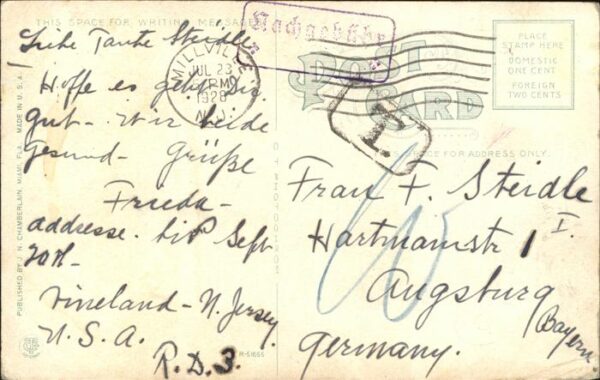 THIS SPACE FOR WRITING MESSAGES
Nachgebühr
Liebe Tante Steidle
Hoffe es geht Dir
gut - Wir beide
gesund - Grüße
Frieda -
addresse. bis Sept
20th -
Vineland - N. Jersey.
U.S.A.
R.D.3.
MILLVILLE
JUL 23
1928
N.J.
POST CARD
PLACE
STAMP HERE
DOMESTIC
ONE CENT
FOREIGN
TWO CENTS
T.
SPACE FOR ADDRESS ONLY.
Frau F. Steidle
Hartmannstr 1 I.
Augsburg
Bayern
Germany.
PUBLISHED BY J. N. CHAMBERLAIN, MIAMI, FLA. MADE IN U.S.A.
R-51655